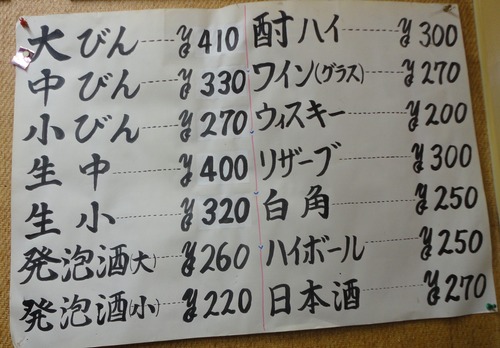 大びん ¥410
中びん ¥330
小びん ¥270
生中 ¥400
生小 ¥320
発泡酒(大) ¥260
発泡酒(小) ¥220
酎ハイ ¥300
ワイン(グラス) ¥270
ウィスキー ¥200
リザーブ ¥300
白角 ¥250
ハイボール ¥250
日本酒 ¥270